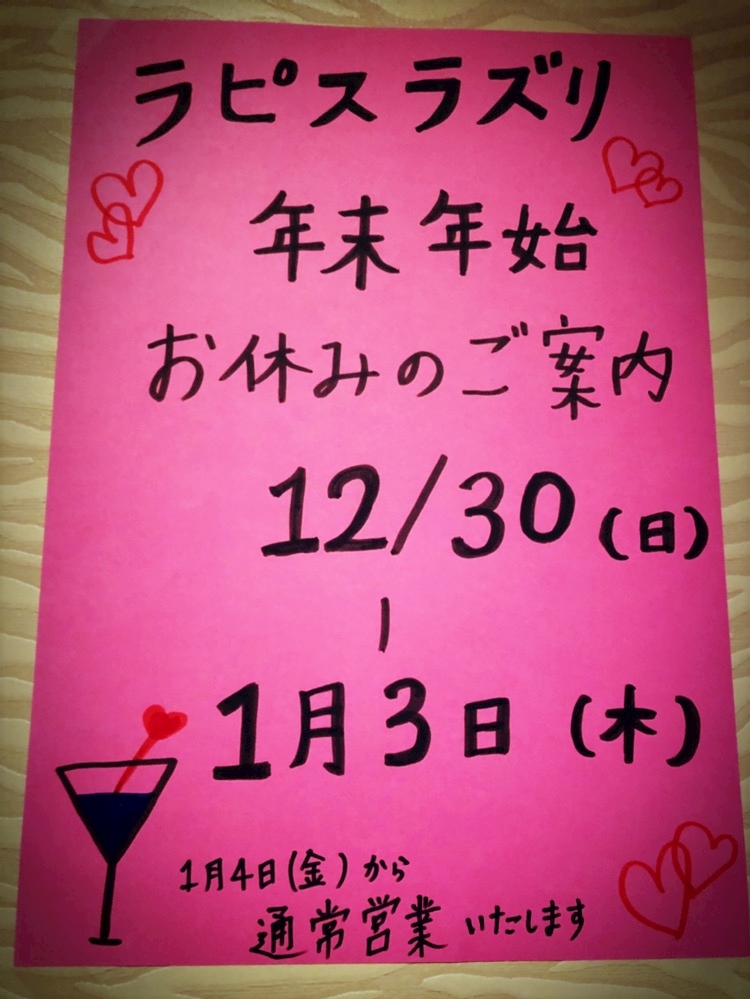 ラピスラズリ
年末年始
お休みのご案内
12/30(日)
|
1月3日(木)
1月4日(金)から
通常営業いたします